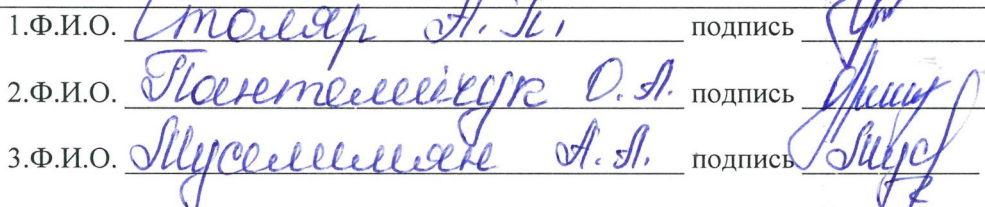 1.Ф.И.О. Столяр А. П. подпись
2.Ф.И.О. Пантелейчук О. А. подпись
3.Ф.И.О. А. А. подпись